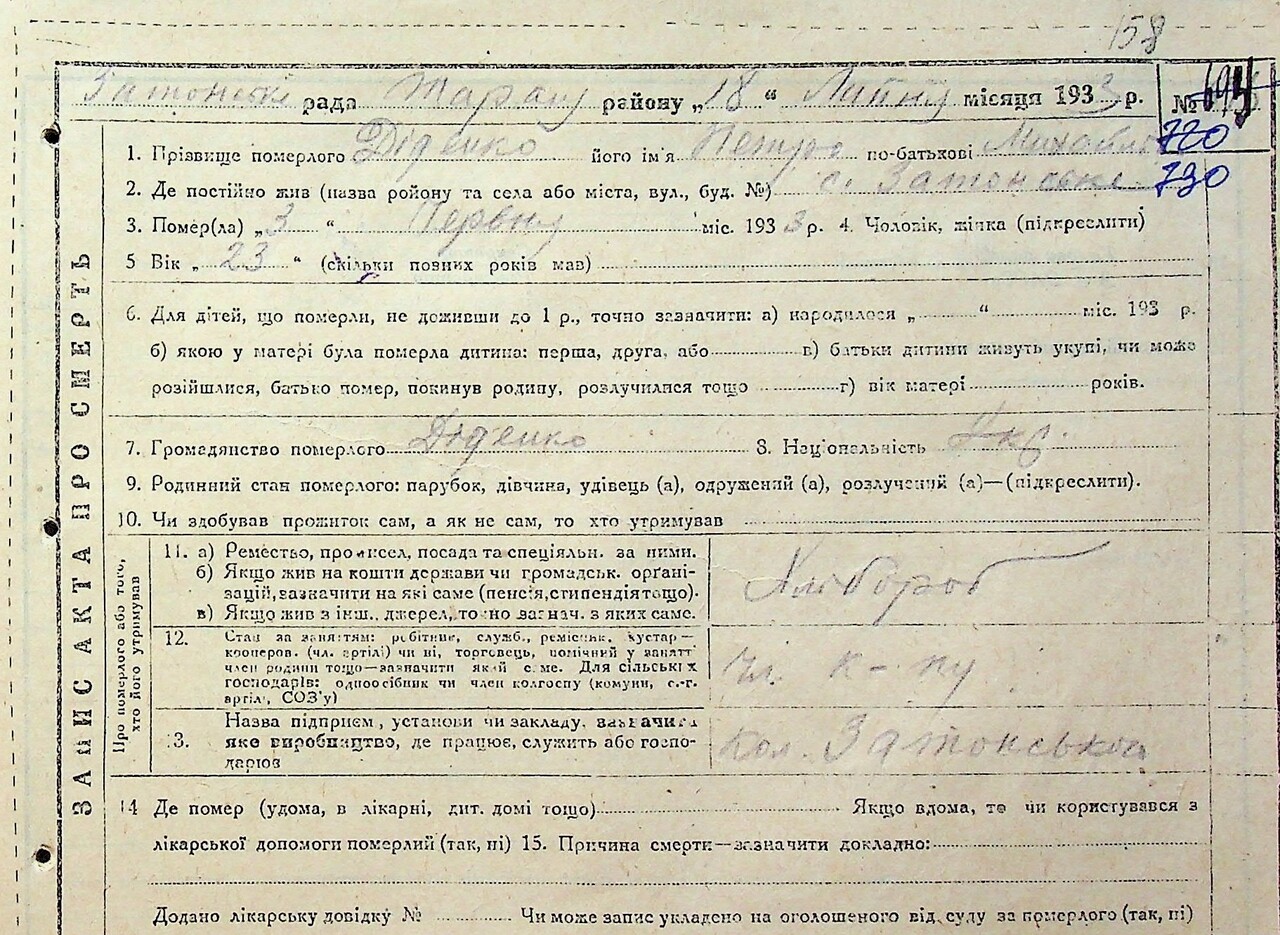 158
Затонські рада Таращ району „18“ Липня місяця 1933 р. № 694
720
730
ЗАПИС АКТА ПРО СМЕРТЬ
1. Прізвище померлого Діденко його ім'я Петро по-батькові Михайлов
2. Де постійно жив (назва району та села або міста, вул., буд. №) с. Затонське
3. Помер(ла) „3“ Червня міс. 1933 р. 4. Чоловік, жінка (підкреслити)
5 Вік „23“ (скільки повних років мав)
6. Для дітей, що померли, не доживши до 1 р., точно зазначити: а) народилося „ “ міс. 193 р.
б) якою у матері була померла дитина: перша, друга, або в) батьки дитини живуть укупі, чи може
розійшлися, батько помер, покинув родину, розлучилися тощо г) вік матері років.
7. Громадянство померлого Діденко 8. Національність Укр.
9. Родинний стан померлого: парубок, дівчина, удівець (а), одружений (а), розлучений (а)—(підкреслити).
10. Чи здобував прожиток сам, а як не сам, то хто утримував
Про померлого або того, хто його утримував
11. а) Ремество, промисел, посада та спеціяльн. за ними.
б) Якщо жив на кошти держави чи громадськ. орґані-
зацій, зазначити на які саме (пенсія, стипендія тощо).
в) Якщо жив з інш. джерел, точно зазнач. з яких саме.
Хлібороб
12. Стан за заняттям: робітник, служб., ремісник, кустар—
кооперов. (чл. артілі) чи ні, торговець, помічний у занятті
член родини тощо—зазначити який саме. Для сільських
господарів: одноосібник чи член колгоспу (комуни, с.-г.
артіл', СОЗ'у)
Чл. к-пу
13. Назва підприєм, установи чи закладу, зазначити
яке виробництво, де працює, служить або госпо-
дарює
Кол. Затонського
14 Де помер (удома, в лікарні, дит. домі тощо) Якщо вдома, то чи користувався з
лікарської допомоги померлий (так, ні) 15. Причина смерти—зазначити докладно:
Додано лікарську довідку № Чи може запис укладено на оголошеного від суду за померлого (так, ні)